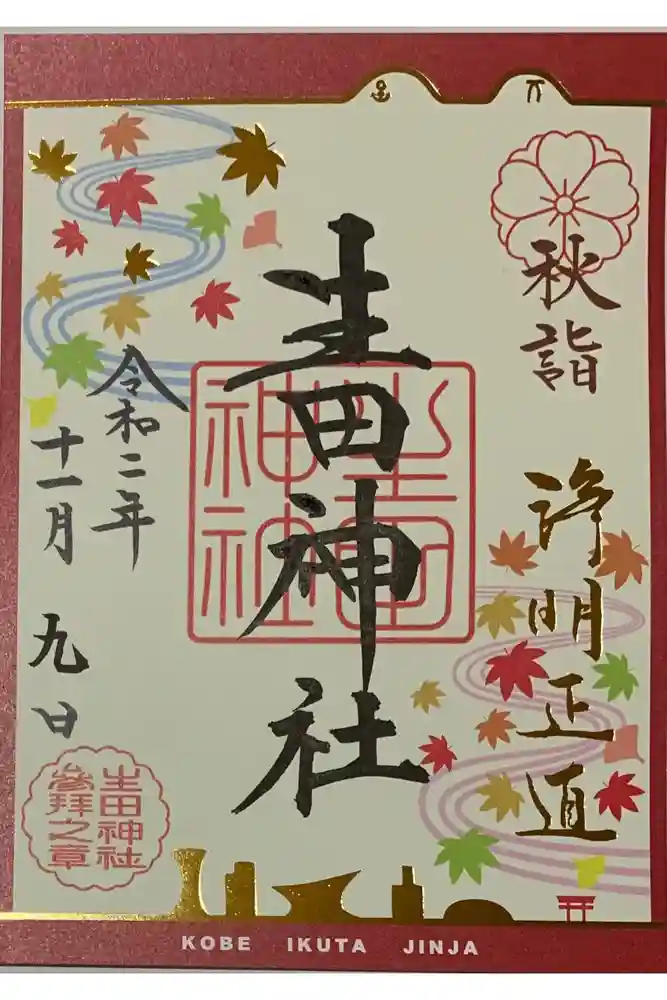 秋詣
浄明正道
生田神社
生田神社
令和二年
十一月九日
生田神社
參拝之章
KOBE IKUTA JINJA